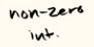 non-zero
int.